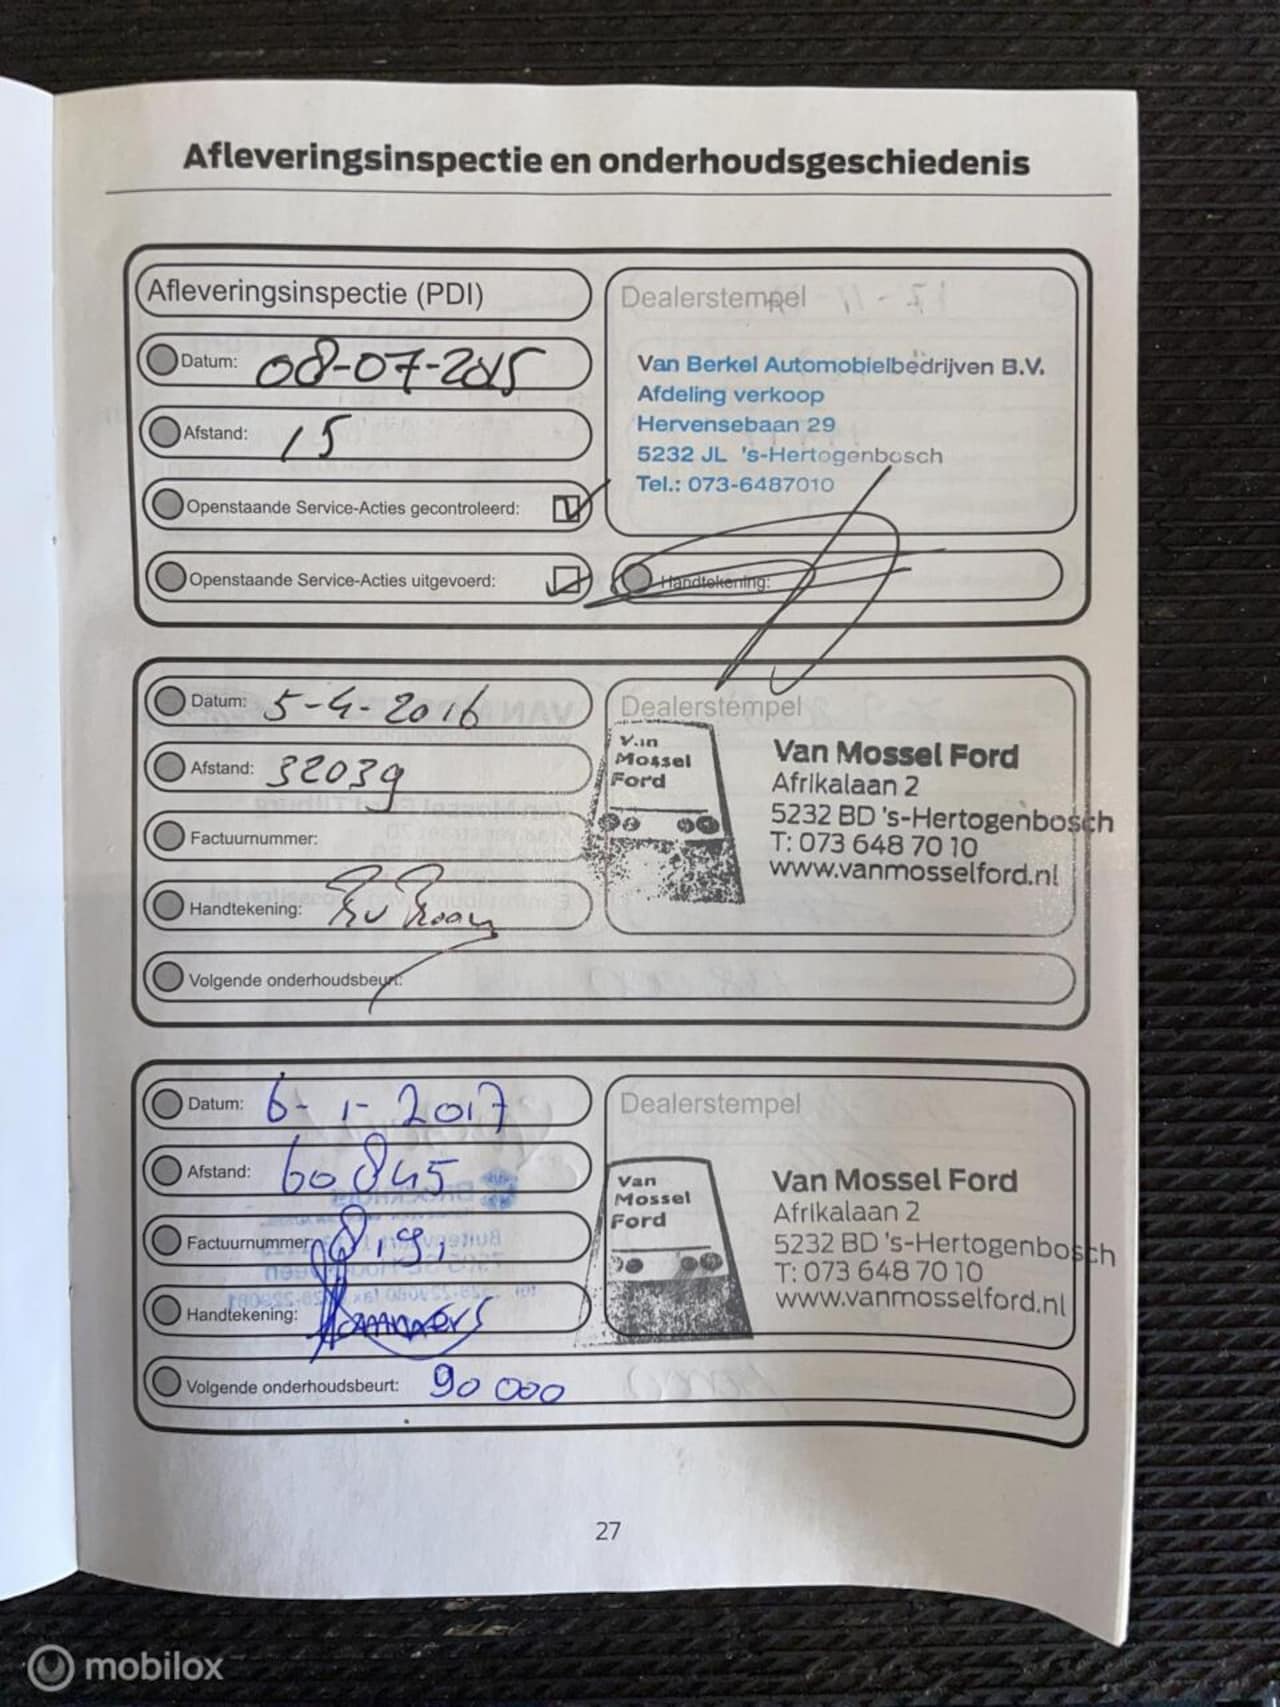 Afleveringsinspectie en onderhoudsgeschiedenis
Afleveringsinspectie (PDI)
Datum: 08-07-2015
Afstand: 15
Openstaande Service-Acties gecontroleerd:
Openstaande Service-Acties uitgevoerd:
Dealerstempel
Van Berkel Automobielbedrijven B.V.
Afdeling verkoop
Hervensebaan 29
5232 JL 's-Hertogenbosch
Tel.: 073-6487010
Handtekening:
Datum: 5-4-2016
Afstand: 32039
Factuurnummer:
Handtekening:
Volgende onderhoudsbeurt:
Dealerstempel
Van
Mossel
Ford
Van Mossel Ford
Afrikalaan 2
5232 BD 's-Hertogenbosch
T: 073 648 70 10
www.vanmosselford.nl
Datum: 6-1-2017
Afstand: 60845
Factuurnummer:
Handtekening:
Volgende onderhoudsbeurt: 90 000
Dealerstempel
Van
Mossel
Ford
Van Mossel Ford
Afrikalaan 2
5232 BD 's-Hertogenbosch
T: 073 648 70 10
www.vanmosselford.nl
27
mobilox